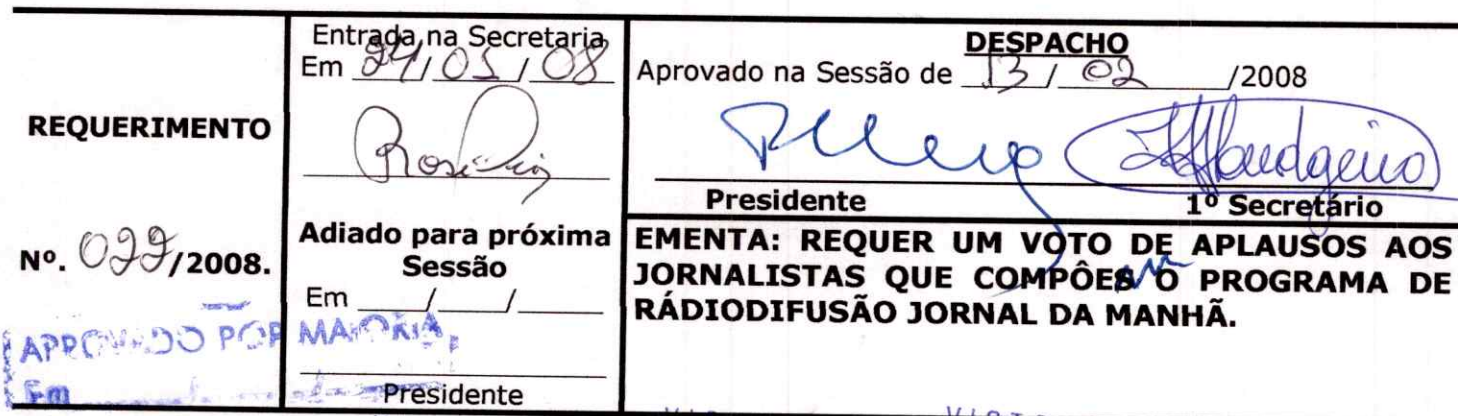 REQUERIMENTO
Nº. 022/2008.
APROVADO POR MAIORIA
Em
Entrada na Secretaria
Em 24/01/08
Adiado para próxima
Sessão
Em ___/___/_____
Presidente
DESPACHO
Aprovado na Sessão de 13/02/2008
Presidente 1º Secretário
EMENTA: REQUER UM VOTO DE APLAUSOS AOS
JORNALISTAS QUE COMPÔES O PROGRAMA DE
RÁDIODIFUSÃO JORNAL DA MANHÃ.